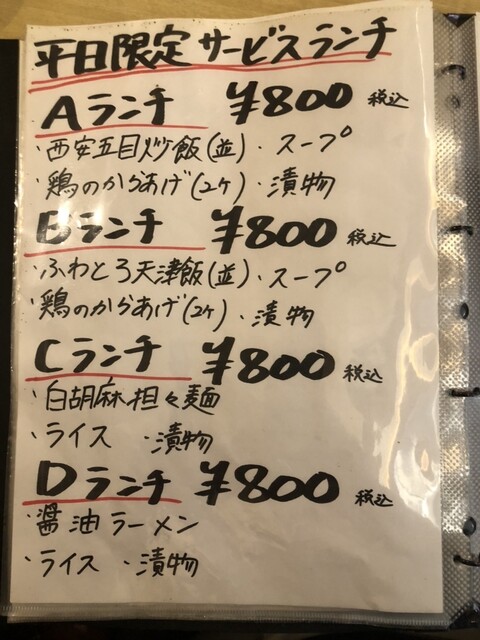 平日限定 サービスランチ
Aランチ ¥800 税込
・西安五目炒飯(並)・スープ
・鶏のからあげ(2ケ)・漬物
Bランチ ¥800 税込
・ふわとろ天津飯(並)・スープ
・鶏のからあげ(2ケ)・漬物
Cランチ ¥800 税込
・白胡麻担々麺
・ライス ・漬物
Dランチ ¥800 税込
・醤油ラーメン
・ライス ・漬物